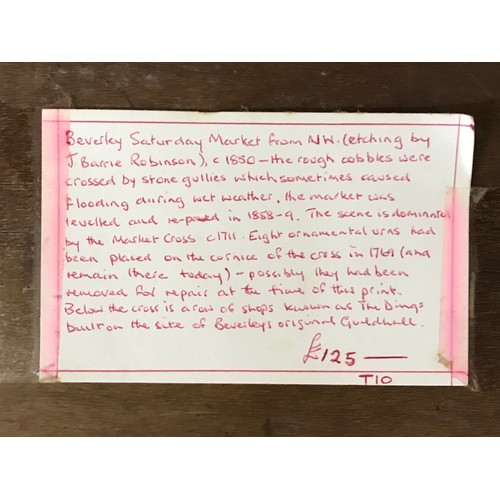 Beverley Saturday Market from N.W. (etching by
J Barrie Robinson), c 1830 - the rough cobbles were
crossed by stone gullies which sometimes caused
flooding during wet weather, the market was
levelled and re-paved in 1858-9. The scene is dominated
by the Market Cross c.1711. Eight ornamental urns had
been placed on the cornice of the cross in 1769 (and
remain there today) - possibly they had been
removed for repair at the time of this print.
Below the cross is a row of shops known as The Dings
built on the site of Beverley's original Guildhall.
£125 —
T10